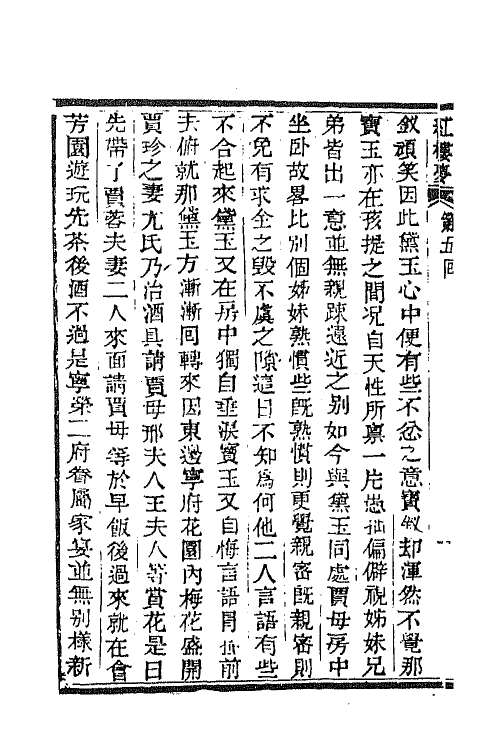 紅樓夢 第五回
釵頑笑因此黛玉心中便有些不忿之意寶釵却渾然不覺那
寶玉亦在孩提之間况自天性所禀一片愚拙偏僻視姊妹兄
弟皆出一意並無親疎遠近之别如今與黛玉同處賈母房中
坐卧故畧比别個姊妹熟慣些旣熟慣則更覺親密旣親密則
不免有求全之毁不虞之隙這日不知爲何他二人言語有些
不合起來黛玉又在房中獨自垂淚寶玉又自悔言語冒撞前
去俯就那黛玉方漸漸回轉來因東邊寧府花園內梅花盛開
賈珍之妻尤氏乃治酒具請賈母邢夫人王夫人等賞花是日
先帶了賈蓉夫妻二人來面請賈母等於早飯後過來就在會
芳園遊玩先茶後酒不過是寧榮二府眷屬家宴並無别樣新